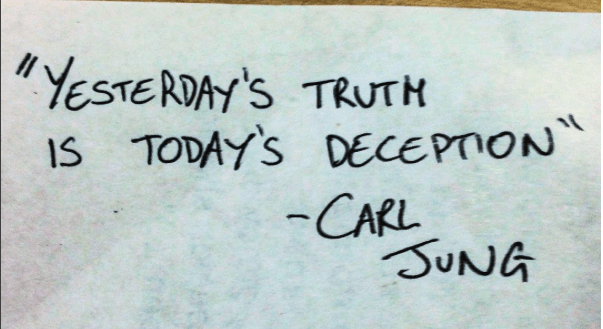 "YESTERDAY'S TRUTH
IS TODAY'S DECEPTION"
-CARL
JUNG